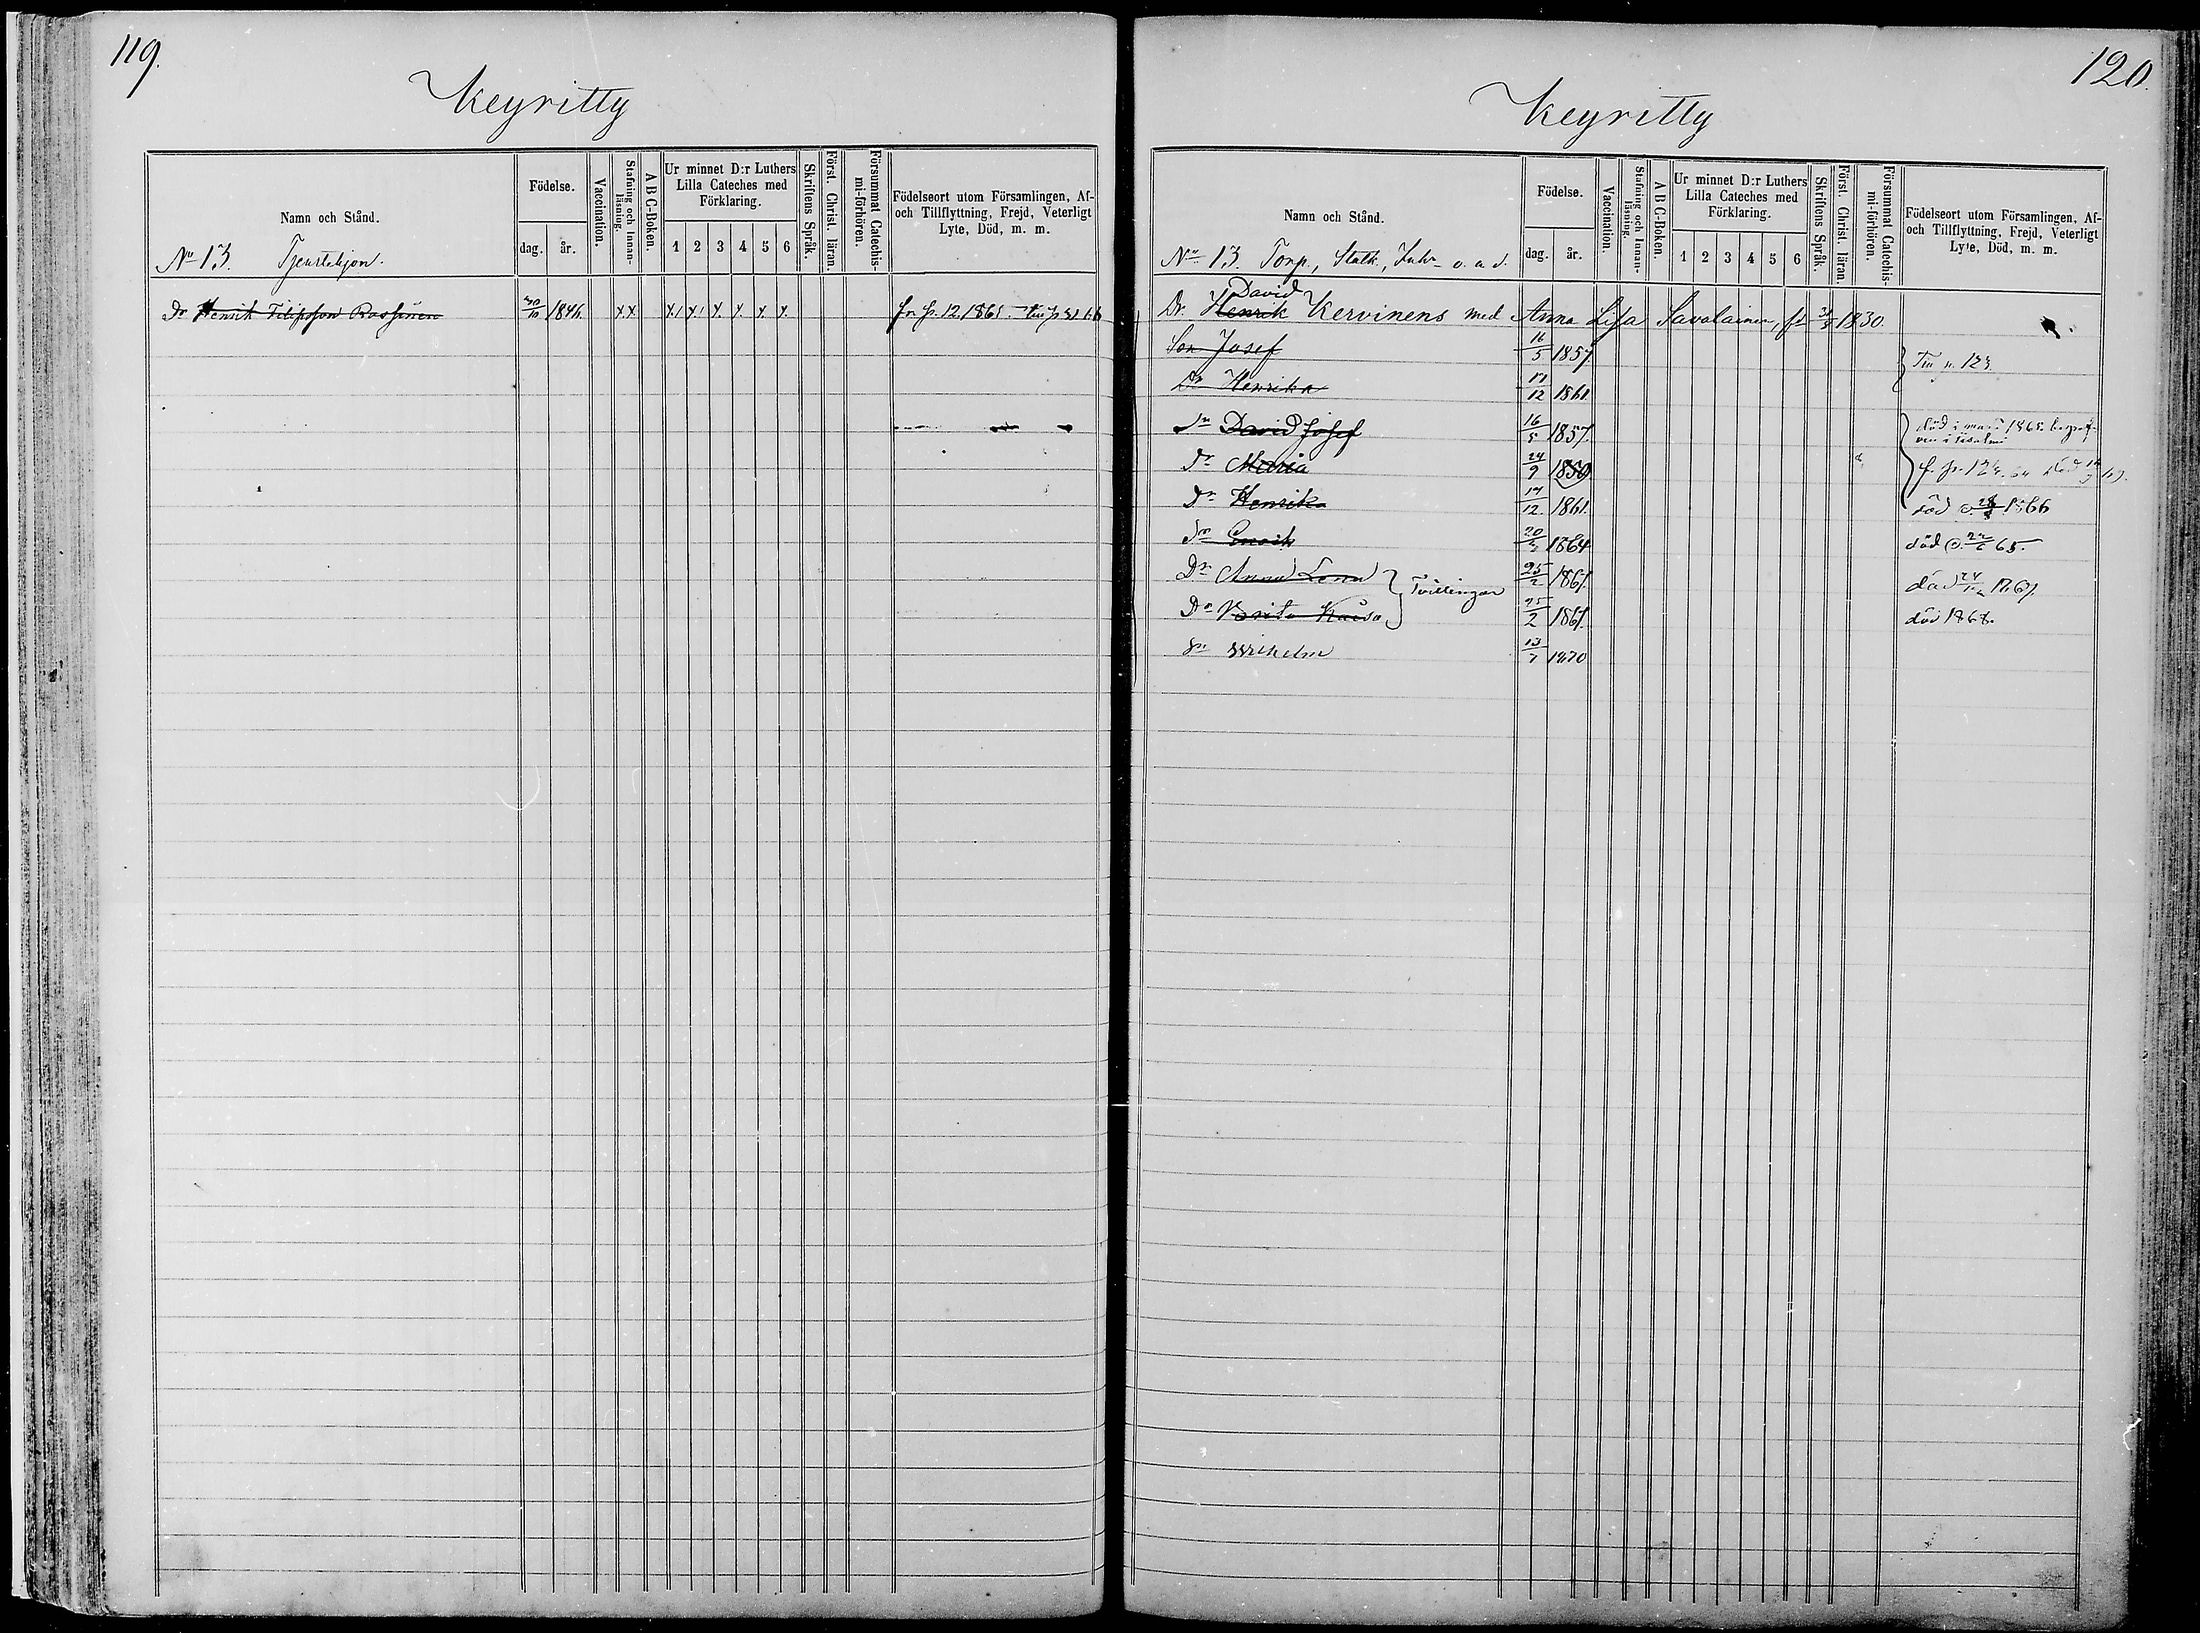 119.
Keyritty
Namn och Stånd.
Födelse.
dag. år.
Vaccination.
Stafning och Innanläsning.
A B C-Boken.
Ur minnet D:r Luthers Lilla Cateches med Förklaring.
1 2 3 4 5 6
Skriftens Språk.
Först. Christ. läran.
Försummat Catechismi-förhören.
Födelseort utom Församlingen, Af- och Tillflyttning, Frejd, Veterligt Lyte, Död, m. m.
No 13. Tjenstehjon.
Dr Henrik Filipsson 30/10 1846 x x x x x x x x fr p. 12, 1865
120.
Keyritty
Namn och Stånd.
Födelse.
dag. år.
Vaccination.
Stafning och Innanläsning.
A B C-Boken.
Ur minnet D:r Luthers Lilla Cateches med Förklaring.
1 2 3 4 5 6
Skriftens Språk.
Först. Christ. läran.
Försummat Catechismi-förhören.
Födelseort utom Församlingen, Af- och Tillflyttning, Frejd, Veterligt Lyte, Död, m. m.
No 13. Torp., Statk., Inhr o. a. d.
David
Dr. Henrik Kervinens med Anna Lisa Savolainen, fd 1830.
Son Josef 16/5 1857
Dr Henrika 17/12 1861
Sn David Josef 16/5 1857. död i 1868. i Iisalmi
Dr Maria 24/9 1850
Dr Henrika 17/12 1861. död 1866
Sn Enok 1864 död 65.
Dr Anna Lena 25/2 1867. död 1867.
Tvillingar
Dr Brita Kaisa 25/2 1867. död 1868.
Sn Wilhelm 13/7 1870